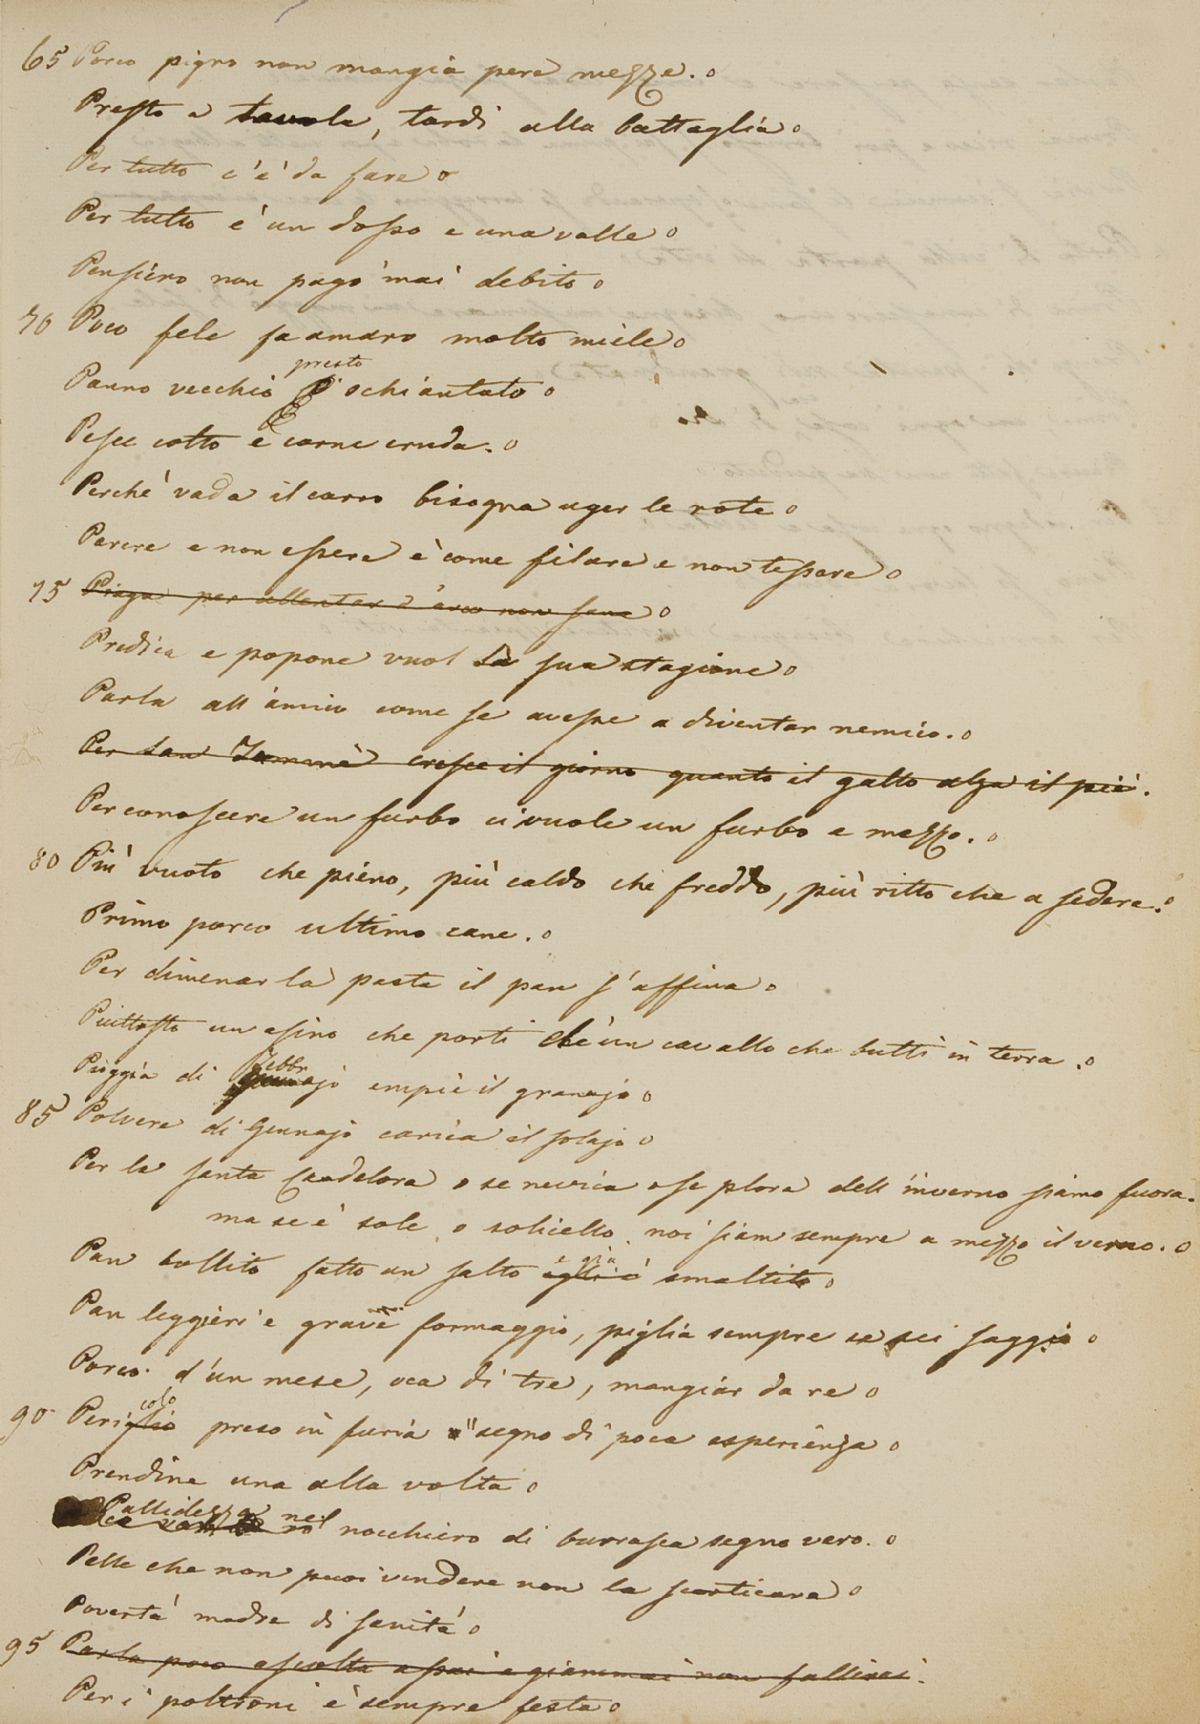 65 Porco pigro non mangia pere mezze. o
Presto a tavola, tardi alla battaglia o
Per tutto c'è da fare o
Per tutto è un dosso e una valle o
Pensiero non pagò mai debito o
70 Poco fele fa amaro molto miele o
presto
Panno vecchio è schiantato o
Pesce cotto e carne cruda. o
Perchè vada il carro bisogna uger le rote o
Parere e non essere è come filare e non tessere o
75 Piaga per allentar d'arco non sana o
Predica e popone vuol la sua stagione o
Parla all'amico come se avesse a diventar nemico. o
Per San Tommè cresce il giorno quanto il gallo alza il piè.
Per conoscere un furbo ci vuole un furbo e mezzo. o
80 Più vuoto che pieno, più caldo che freddo, più ritto che a sedere. o
Primo porco ultimo cane. o
Per dimenar la pasta il pan s'affina o
Piuttosto un asino che porti che un cavallo che butti in terra. o
Febbr
Pioggia di gennajo empie il granajo o
85 Polvere di Gennajo carica il solajo o
Per la santa Candelora o se nevica o se plora dell'inverno siamo fuora.
ma se è sole o solicello noi siam sempre a mezzo il verno. o
e già
Pan bollito fatto un salto egli è smaltito o
Pan leggieri e grave formaggio, piglia sempre se sei saggio o
Porco d'un mese, oca di tre, mangiar da re o
colo
90 Periglio preso in furia segno di poca esperienza o
Prendine una alla volta o
Pallidezza nel
nocchiero di burrasca segno vero. o
Pelle che non puoi vendere non la scorticare o
Povertà madre di sanità o
95 Parla poco ascolta assai e giammai non fallirai.
Per i poltroni è sempre festa o